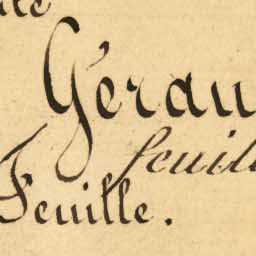 Géran
feuill
Feuille.